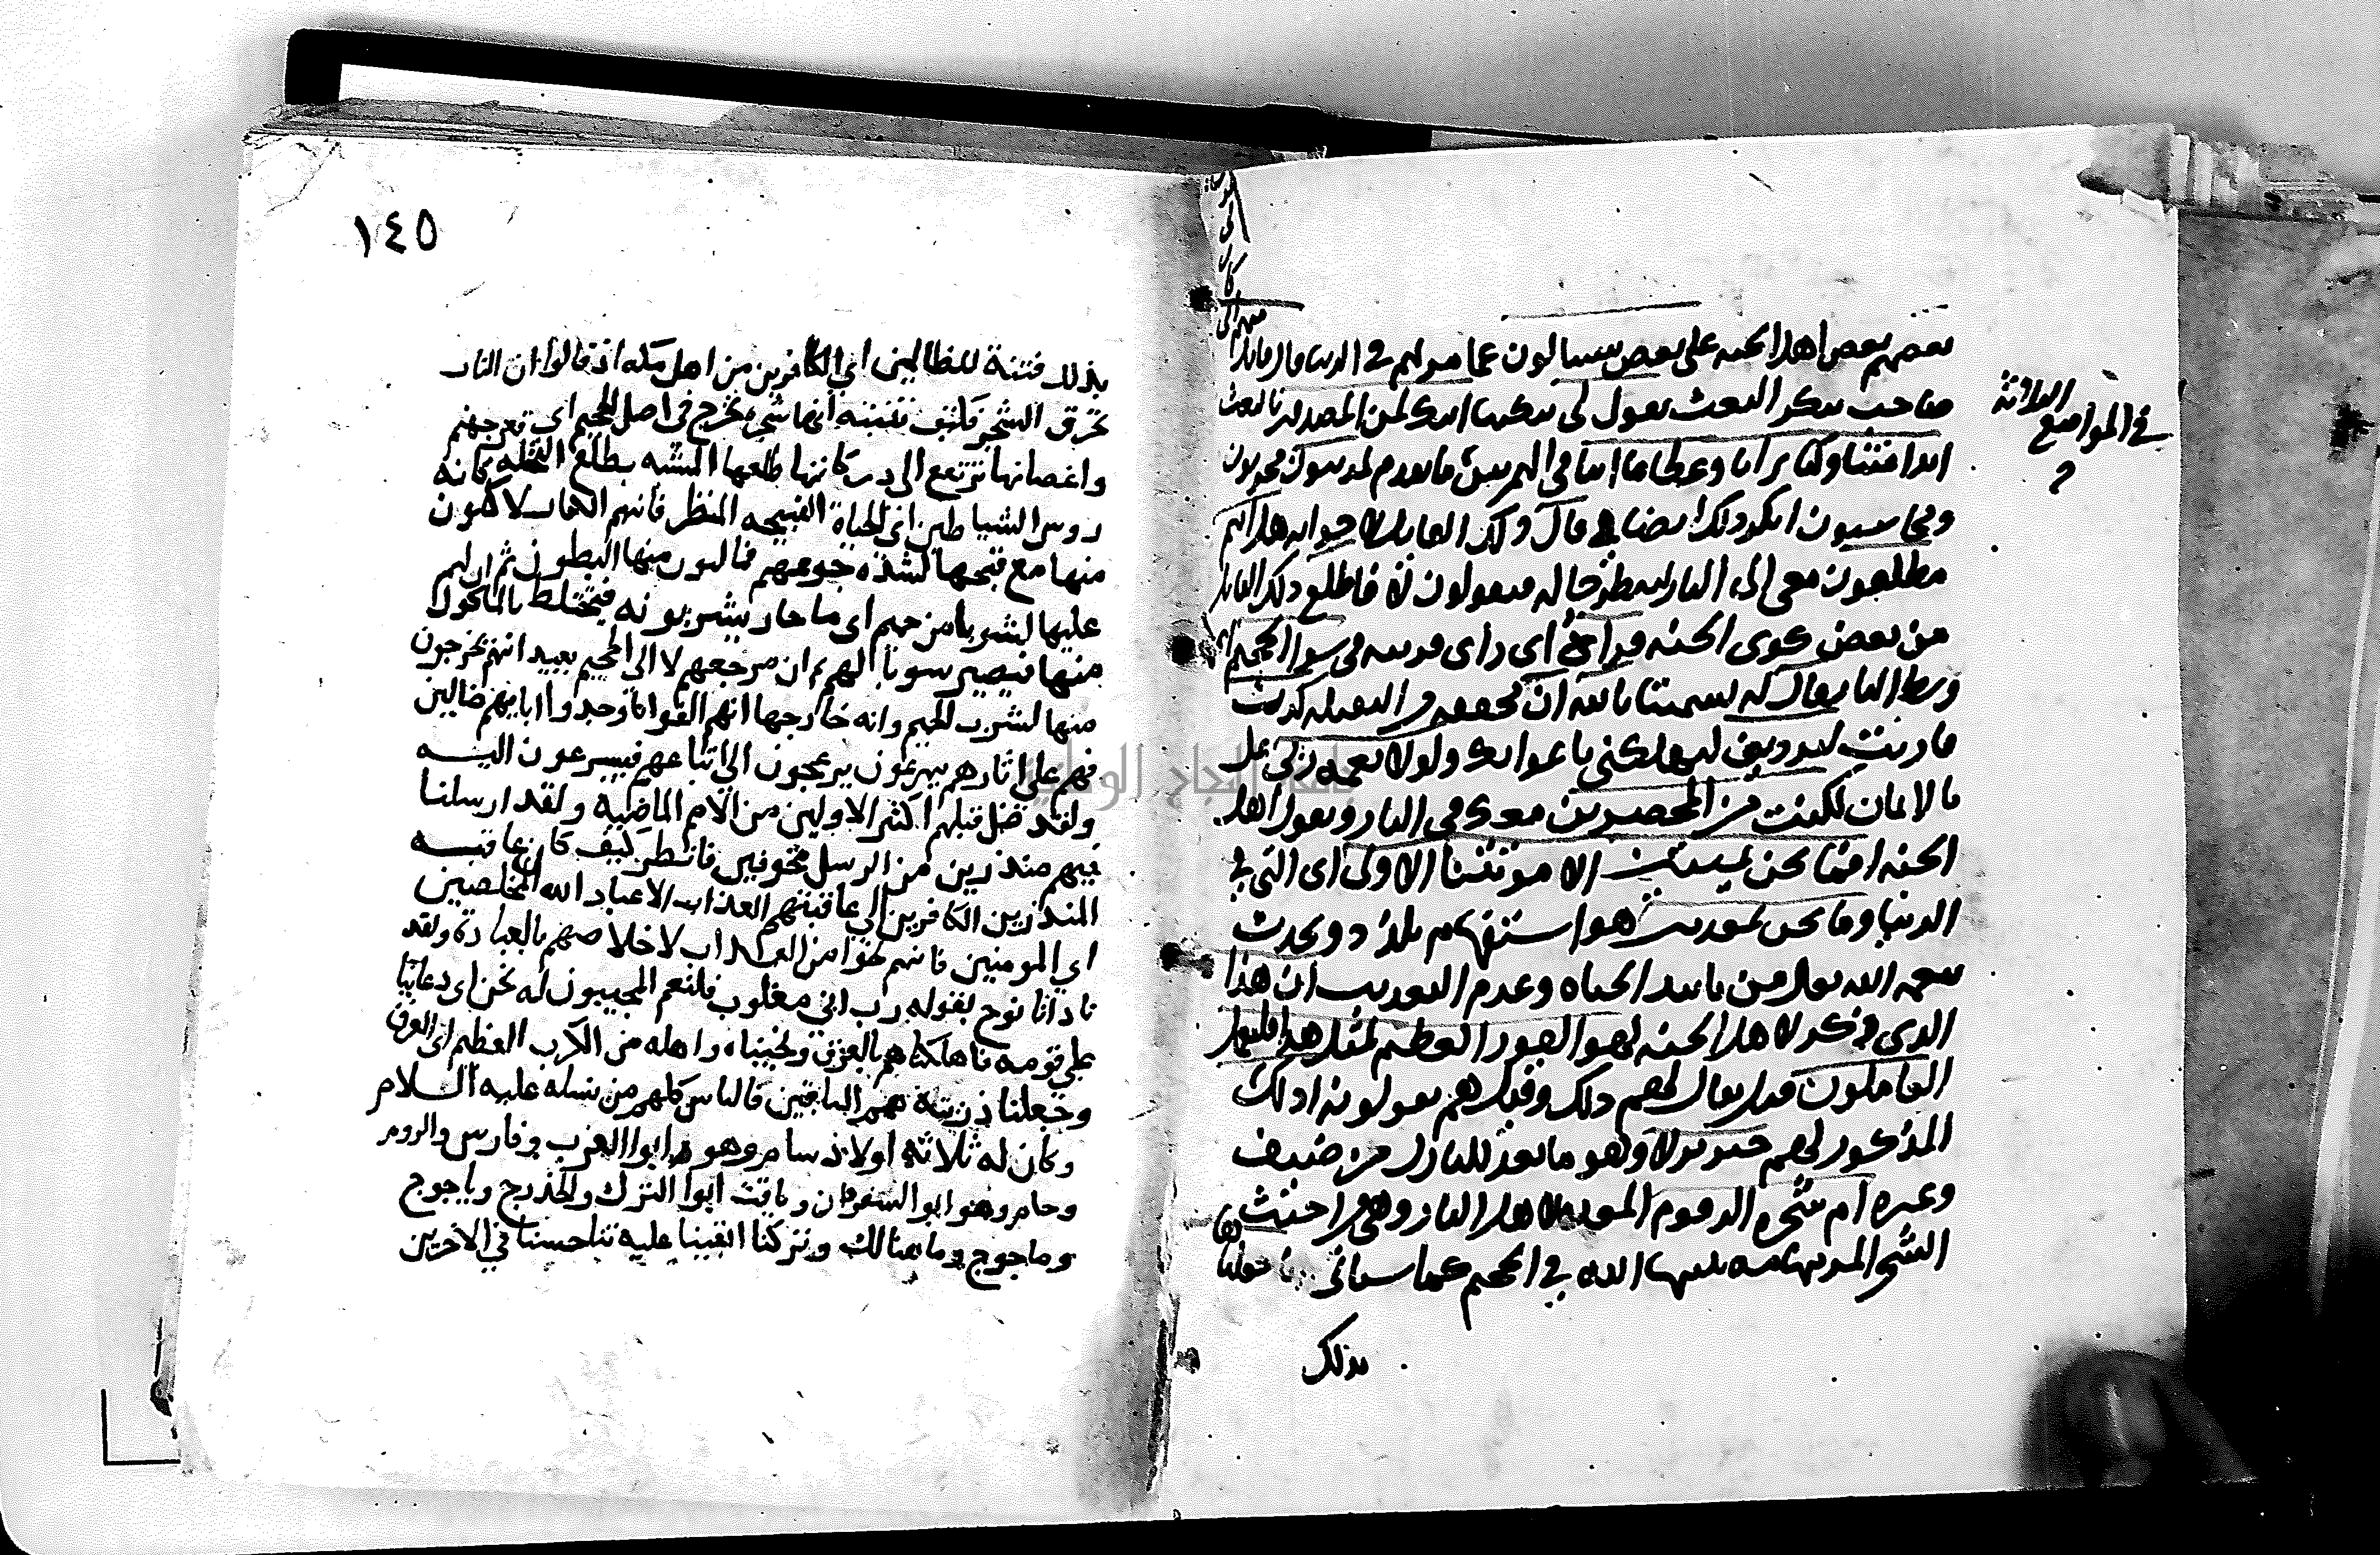 بعضهم بعض اهل الجنه على بعض يتسالون عما مر بهم في الدنيا قال قايل
منهم اني
كان لي
صاحب ينكر البعث يقول لي تبكيتا اينك لمن المصدقين بالبعث
في المواضع الثلاثة
ايذا متنا وكنا ترابا وعظاما اينا في الهمزتين ما تقدم لمدينون مجزيون
ومحاسبون انكر ذلك ايضا قال ذلك القايل لاخوانه هل انتم
مطلعون معي الى النار لننظر حاله فيقولون لا فاطلع ذلك القايل
من بعض كوى الجنه فراه اي راى قرينه في سوا الجحيم اي
وسط النار قال له تشميتا تالله ان مخففه من الثقيله كدت
قاربت لتردين لتهلكني باغوايك ولولا نعمه ربي على
بالايمان لكنت من المحضرين معك في النار ويقول اهل
الجنه افما نحن بميتين الا موتتنا الاولى اي التي في
الدنيا وما نحن بمعذبين هو استفهام تلذذ وتحدث
بنعمه الله تعالى من تابيد الحياه وعدم التعذيب ان هذا
الذي ذكر لاهل الجنه لهو الفوز العظيم لمثل هذا فليعمل
العاملون قيل يقال لهم ذلك وقيل هم يقولونه اذلك
المذكور لهم خير نزلا وهو ما يعد للنازل من ضيف
وغيره ام شجره الزقوم المعده لاهل النار وهي من اخبث
الشجر المر بتهامه ينبتها الله في الجحيم كما سياتي انا جعلناها
بذلك
١٤٥
بذلك فتنة للظالمين اي الكافرين من اهل مكه اذ قالوا ان النار
تحرق الشجر فكيف تنبته انها شجرة تخرج في اصل الجحيم اي قعر جهنم
واغصانها ترتفع الى دركاتها طلعها المشبه بطلع النخله كانه
روس الشياطين اي الحياة القبيحه المنظر فانهم الكفار لاكلون
منها مع قبحها لشدة جوعهم فمالون منها البطون ثم ان لهم
عليها لشوبا من حميم اي ما حار يشربونه فيختلط بالماكول
منها فيصير شوبا لهم ثم ان مرجعهم لا الى الجحيم يفيد انهم يخرجون
منها لشرب الحميم وانه خارجها انهم الفوا وجدوا اباهم ضالين
فهم على اثارهم يهرعون يزعجون الى اتباعهم فيسرعون اليه
ولقد ضل قبلهم اكثر الاولين من الامم الماضيه ولقد ارسلنا
فيهم منذرين من الرسل مخوفين فانظر كيف كان عاقبه
المنذرين الكافرين اي عاقبتهم العذاب الا عباد الله المخلصين
اي المومنين فانهم نجوا من العذاب لاخلاصهم بالعبادة ولقد
نادانا نوح بقوله رب اني مغلوب فلنعم المجيبون له نحن اي دعانا
على قومه فاهلكناهم بالغرق ونجيناه واهله من الكرب العظيم اي الغرق
وجعلنا ذريته هم الباقين فالناس كلهم من نسله عليه السلام
وكان له ثلاثة اولاد سام وهو ابوا العرب وفارس والروم
وحام وهو ابو السودان ويافث ابوا الترك والخزرج وياجوج
وماجوج وما هنالك وتركنا ابقينا عليه ثنا حسنا في الاخرين
جامعة النجاح الوطنية